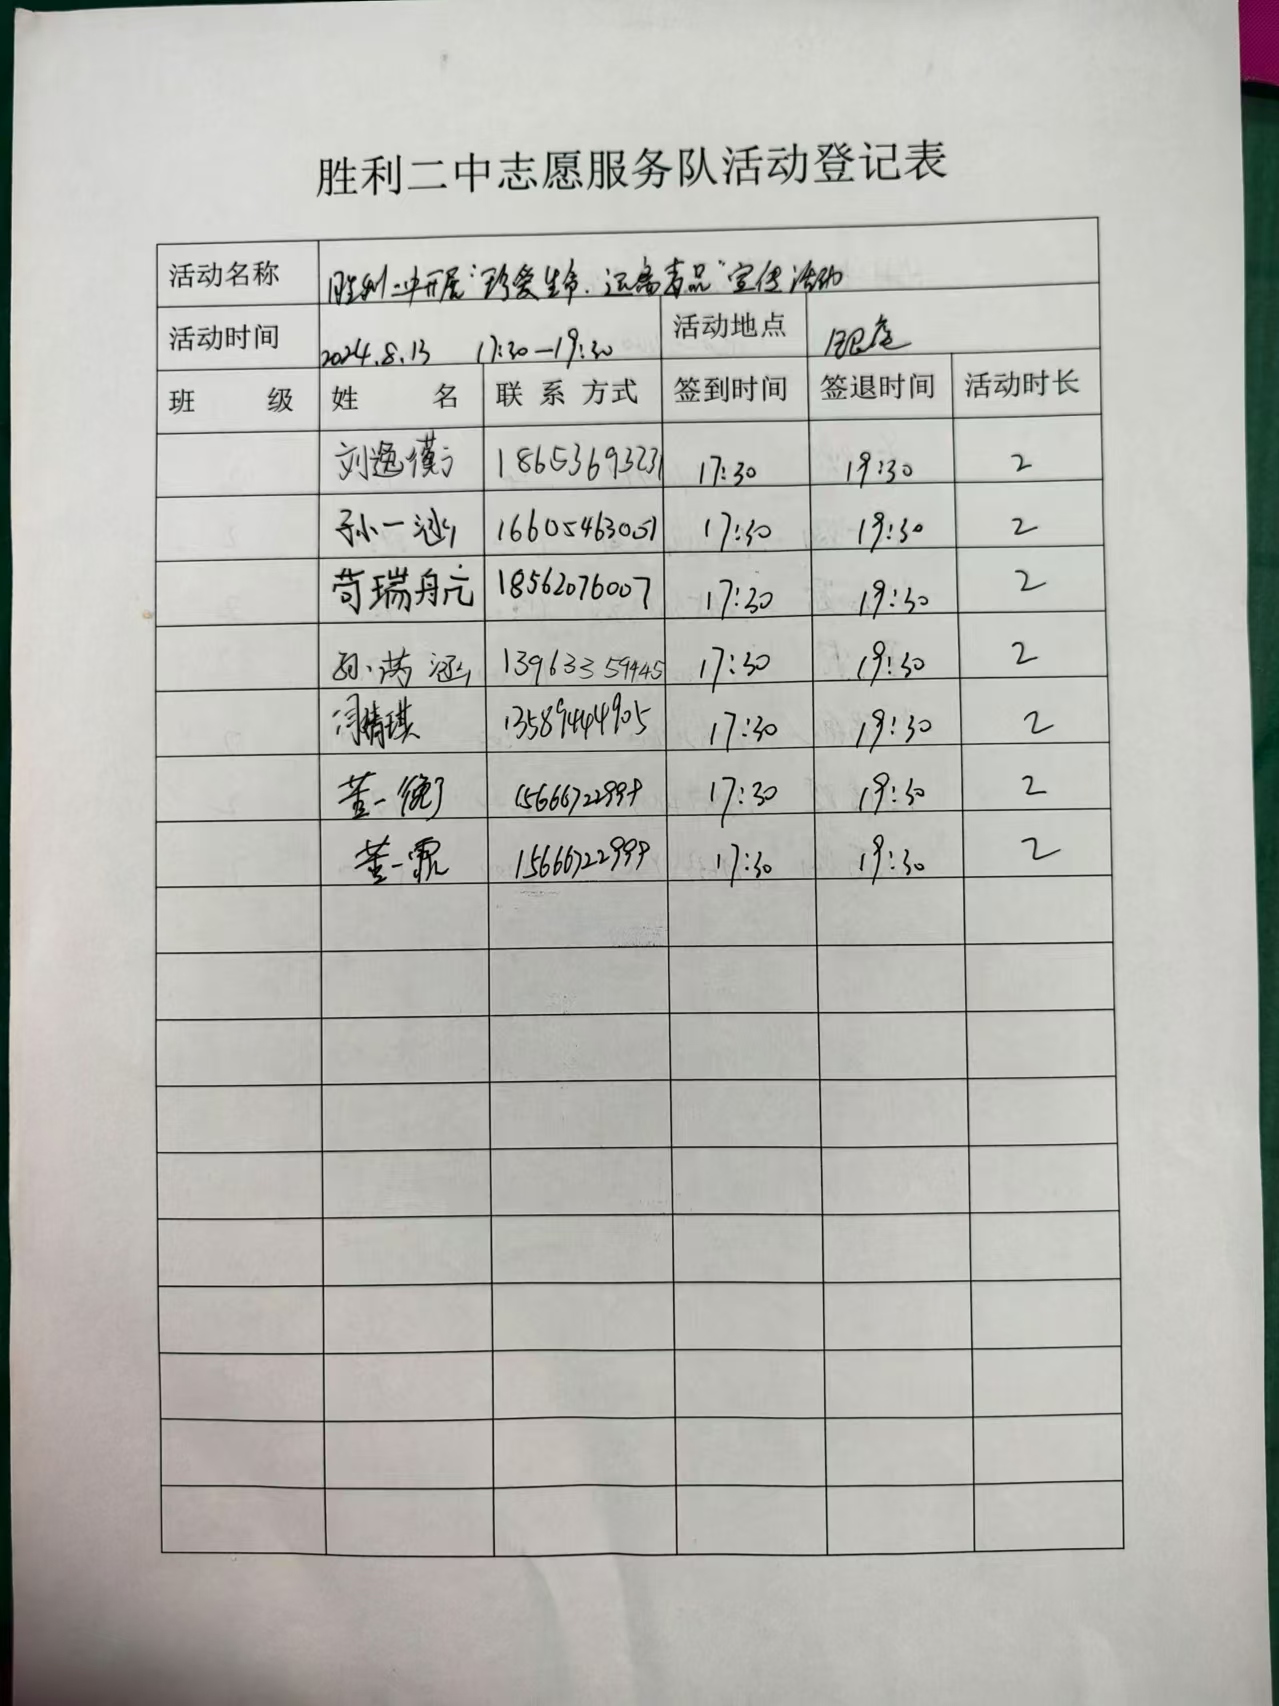 胜利二中志愿服务队活动登记表
活动名称 胜利二中开展“珍爱生命.远离毒品”宣传活动
活动时间 2024.8.13 17:30—19:30 活动地点 银座
班 级 姓 名 联系方式 签到时间 签退时间 活动时长
刘逸 18653693231 17:30 19:30 2
孙一涵 16605463051 17:30 19:30 2
苟瑞航 18562076007 17:30 19:30 2
孙涵 13963359445 17:30 19:30 2
闫婧琪 13589444905 17:30 19:30 2
董一 15666722999 17:30 19:30 2
董一霏 15666722999 17:30 19:30 2